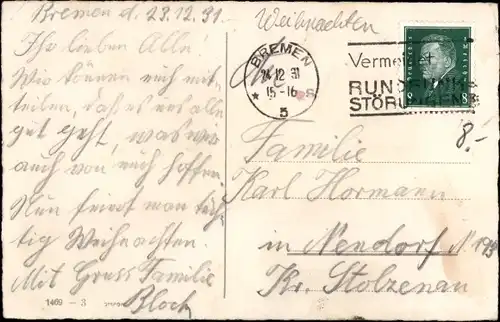 Bremen d. 23.12.31
Ihr lieben Alle!
Wir können euch mit-
teilen, daß es uns alle
gut geht, was wir
auch von euch hoffen.
Nun feiert man tüch-
tig Weihnachten.
Mit Gruss Familie
Bloch
1469 - 3
Weihnachten
BREMEN
24 12 31
15-16
5
Vermeidet
RUNDFUNK
STÖRUNGEN
8 8
8.-
Familie
Karl Hormann
in Nendorf N.
Kr. Stolzenau